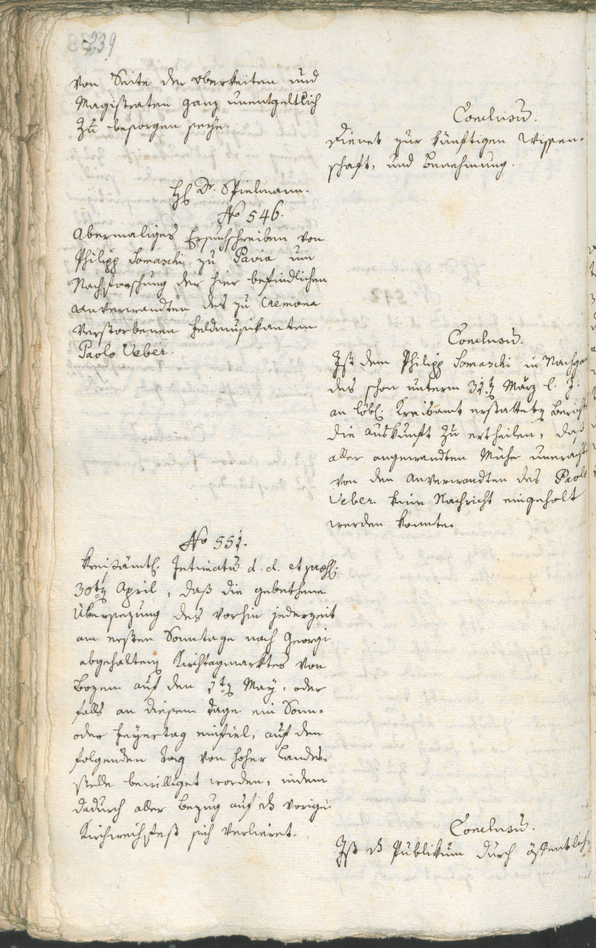 239
von Seite der Obrigkeiten und
Magistraten ganz unentgeltlich
zu besorgen seye.
Conclusu͞.
Dienet zur künftigen Wissen-
schaft, und Benehmung.
H͞. Dr. Spielmann.
No 546.
Abermaliges Ersuchschreiben von
Philipp Somaschi zu Pavia um
Nachforschung der hier befindlichen
Anverwandten des zu Cremona
verstorbenen Feldmusikanten
Paolo Veber.
Conclusu͞.
Ist dem Philipp Somaschi in Nachga
des schon unterm 31ten März l. J.
an löbl. Kreisamt erstatteten Bericht
die Auskunft zu ertheilen, daß
aller angewandten Mühe unerach
von den Anverwandten des Paolo
Veber. keine Nachricht eingeholt
werden konnte.
No 551.
Kreisämtl. Intimatu͞ d. d. et
30ten April, daß die gebethene
Übersezung des vorhin jederzeit
am ersten Sonntage nach Georgi
abgehaltenen Kirchtagmarktes von
Bozen auf den May, oder
falls an diesem Tage ein Sonn-
oder Feyertag einfiel, auf den
folgenden Tag von hoher Landes-
stelle bewilliget worden, indem
dadurch aller Bezug auf vorige
Kirchweihfest sich verlieret.
Conclusu͞.
Ist Publikum durch öffentlich